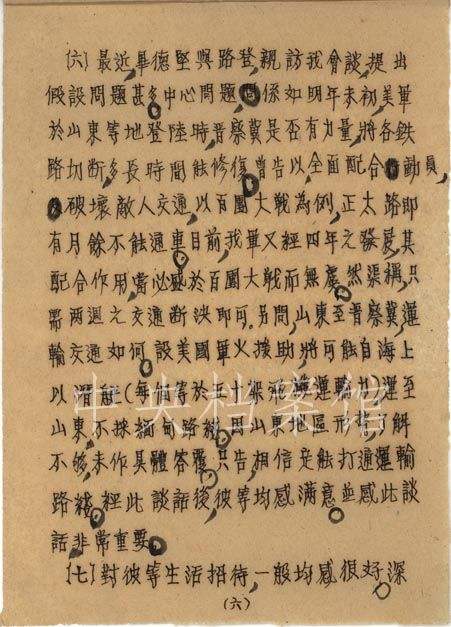 (六)最近畢德堅與路登,親訪我會談,提出
假設問題甚多,中心問題關係如明年末初,美軍
於山東等地登陸時,晋察冀是否有力量,將各鉄
路切断,多長時間能修復,曾告以全面配合動員,
破壞敵人交通,以百團大戦為例,正太路即
有月餘不能通車,目前,我軍又經四年之發展,其
配合作用當必盛於百團大戦而無處,然渠稱,只
需兩週之交通断决即可,另問,山東至晋察冀運
輸交通如何,設美國軍火援助,將可能自海上
以潛艇(每個等於五十架飛機運輸力)運至
山東,不採緬甸路綫,因山東地區形勢了解
不够,未作具體答覆,只告,相信定能打通運輸
路綫,經此談話後,彼等均感満意,並感此談
話非常重要。
(七)對彼等生活招待,一般均感很好,深
(六)
中央档案馆